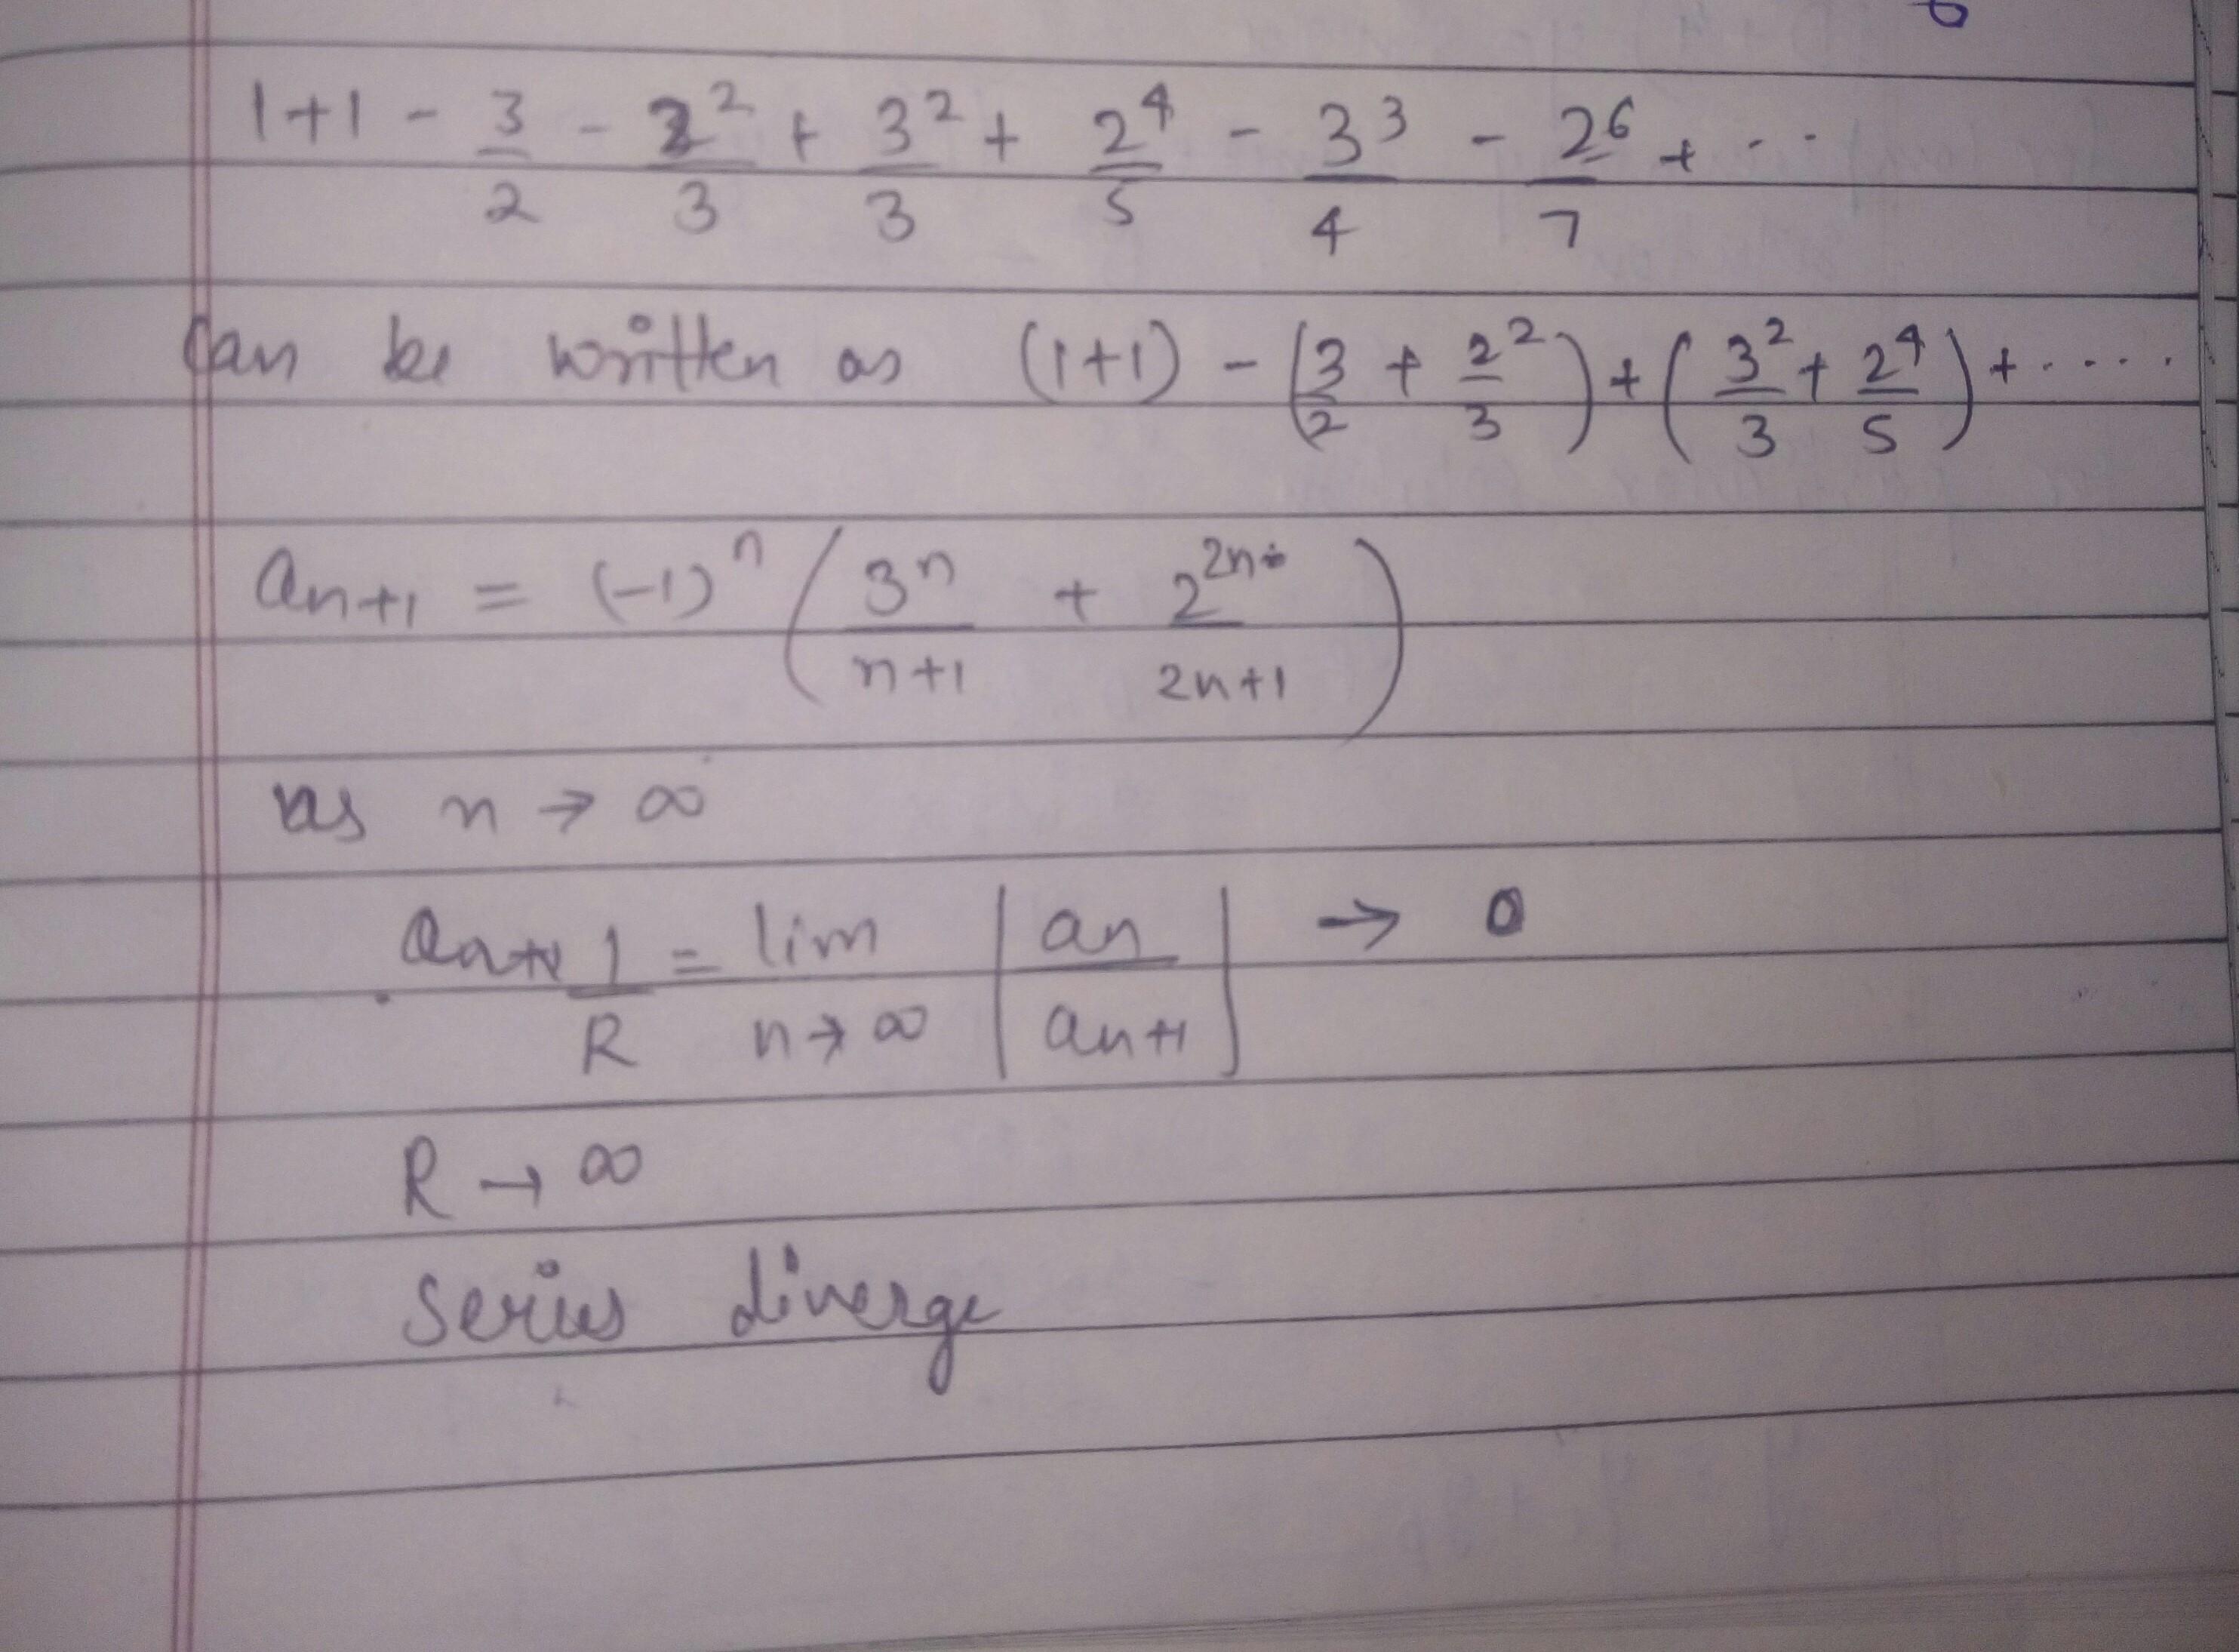 1+1 - 3/2 - 2^2/3 + 3^2/3 + 2^4/5 - 3^3/4 - 2^6/7 + ...
Can be written as (1+1) - (3/2 + 2^2/3) + (3^2/3 + 2^4/5) + .....
an+1 = (-1)^n (3^n/n+1 + 2^2n/2n+1)
as n → ∞
1/R = lim n→∞ |an/an+1| → 0
R → ∞
Series diverge